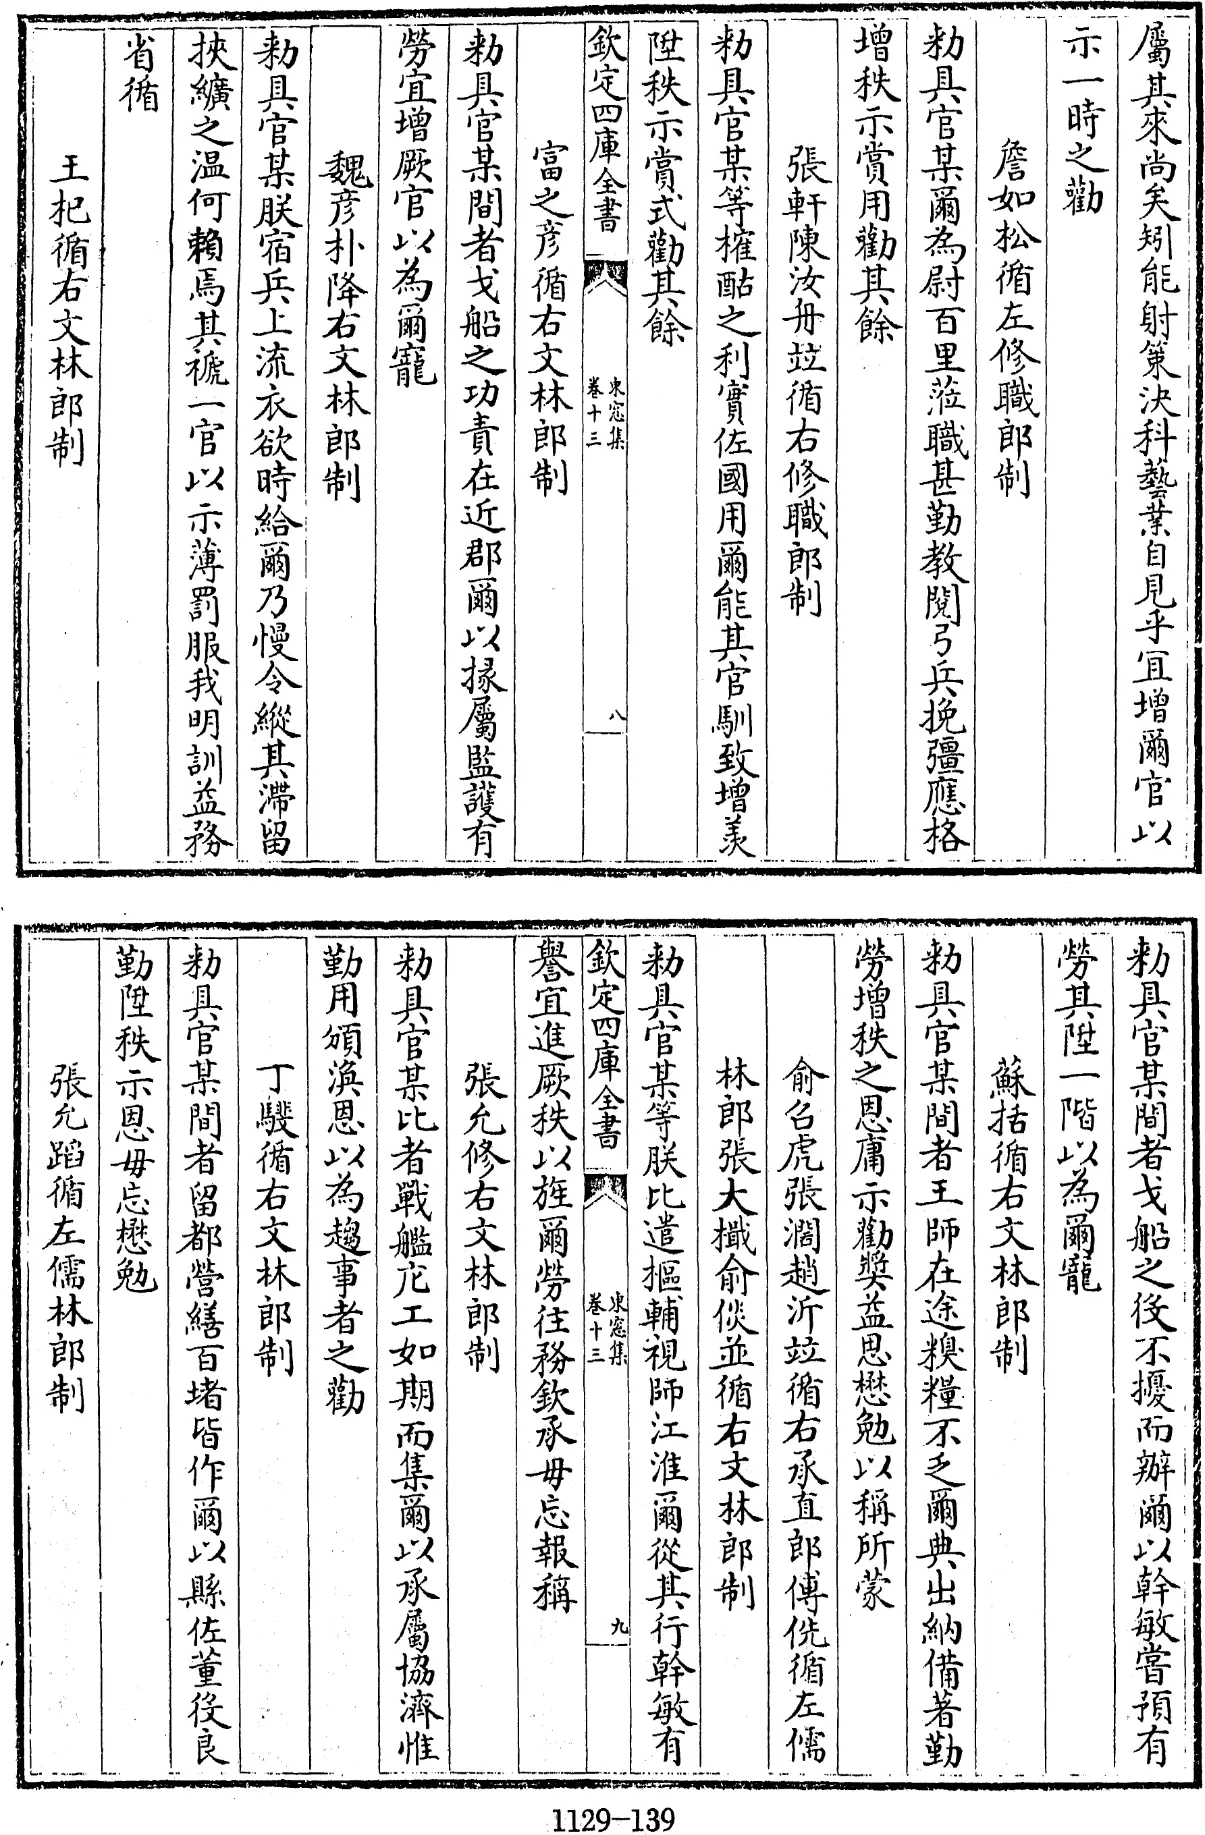 屬其來尚矣矧能射策決科藝業自見乎宜增爾官以
示一時之勸
詹如松循左修職郎制
勑具官某爾為尉百里蒞職甚勤教閱弓兵挽彊應格
增秩示賞用勸其餘
張軒陳汝舟竝循右修職郎制
勑具官某等搉酤之利實佐國用爾能其官馴致增羡
陞秩示賞式勸其餘
欽定四庫全書
東窓集
卷十三
八
富之彥循右文林郎制
勑具官某間者戈船之功責在近郡爾以掾屬監護有
勞宜增厥官以為爾寵
魏彥朴降右文林郎制
勑具官某朕宿兵上流衣欲時給爾乃慢令縱其滯留
挾纊之温何賴焉其褫一官以示薄罰服我明訓益務
省循
王杞循右文林郎制
勑具官某間者戈船之役不擾而辦爾以幹敏嘗預有
勞其陞一階以為爾寵
蘇括循右文林郎制
勑具官某間者王師在途糗糧不乏爾典出納備著勤
勞增秩之恩庸示勸奬益思懋勉以稱所蒙
俞召虎張濶趙沂竝循右承直郎傅侁循左儒
林郎張大檝俞倓並循右文林郎制
勑具官某等朕比遣樞輔視師江淮爾從其行幹敏有
欽定四庫全書
東窓集
卷十三
九
譽宜進厥秩以旌爾勞往務欽承毋忘報稱
張允修右文林郎制
勑具官某比者戰艦庀工如期而集爾以承屬協濟惟
勤用頒渙恩以為趨事者之勸
丁騣循右文林郎制
勑具官某間者留都營繕百堵皆作爾以縣佐董役良
勤陞秩示恩毋忘懋勉
張允蹈循左儒林郎制
1129-139